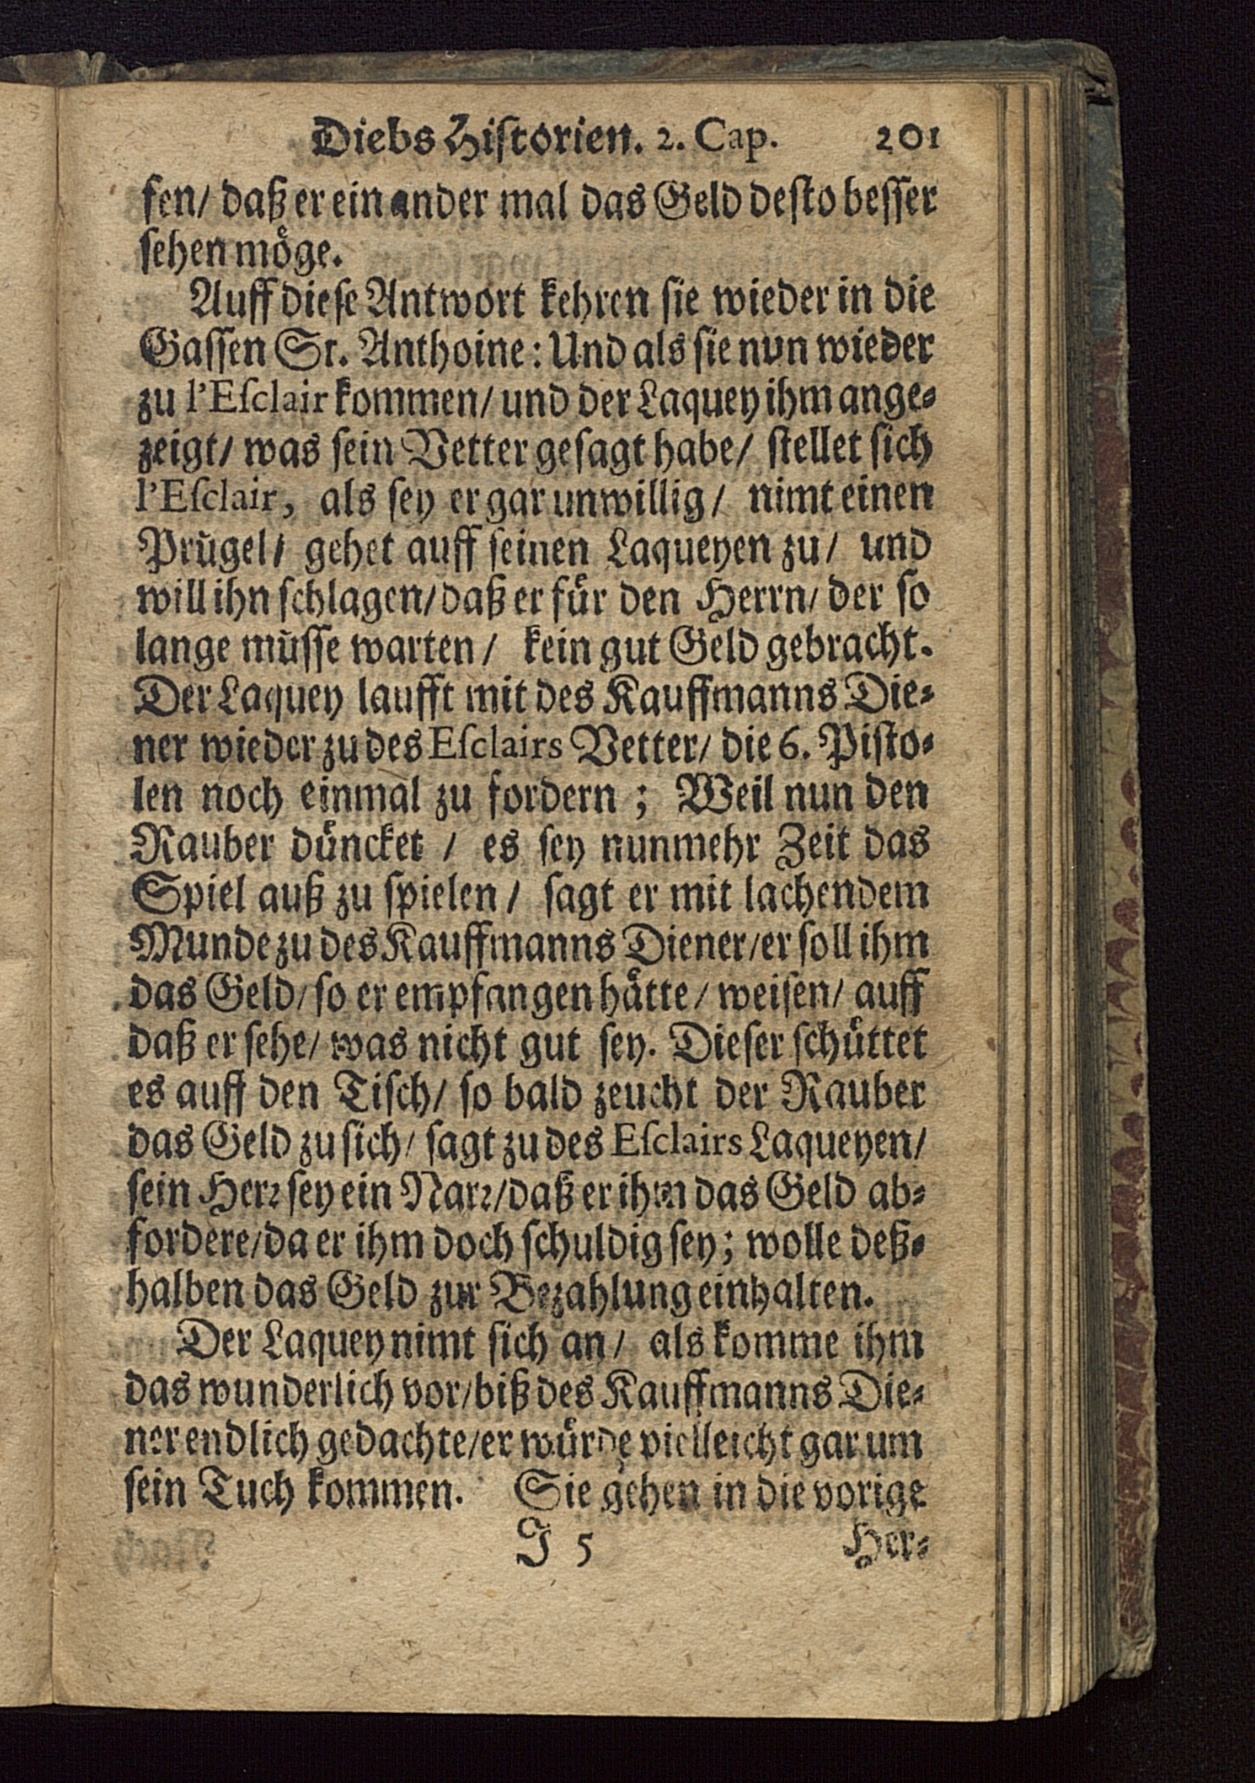 Diebs Historien. 2. Cap. 201
sen/ daß er ein ander mal das Geld desto besser
sehen möge.
Auff diese Antwort kehren sie wieder in die
Gassen St. Anthoine: Und als sie nun wieder
zu l'Esclair kommen/ und der Laquey ihm ange-
zeigt/ was sein Vetter gesagt habe/ stellet sich
l'Esclair, als sey er gar unwillig/ nimt einen
Prügel/ gehet auff seinen Laqueyen zu/ und
will ihn schlagen/ daß er für den Herrn/ der so
lange müsse warten/ kein gut Geld gebracht.
Der Laquey laufft mit des Kauffmanns Die-
ner wieder zu des Esclairs Vetter/ die 6. Pisto-
len noch einmal zu fordern; Weil nun den
Rauber düncket/ es sey nunmehr Zeit das
Spiel auß zu spielen/ sagt er mit lachendem
Munde zu des Kauffmanns Diener/ er soll ihm
das Geld/ so er empfangen hätte/ weisen/ auff
daß er sehe/ was nicht gut sey. Dieser schüttet
es auff den Tisch/ so bald zeucht der Rauber
das Geld zu sich/ sagt zu des Esclairs Laqueyen/
sein Herr sey ein Narr/ daß er ihm das Geld ab-
fordere/ da er ihm doch schuldig sey; wolle deß-
halben das Geld zur Bezahlung einhalten.
Der Laquey nimt sich an/ als komme ihm
das wunderlich vor/ biß des Kauffmanns Die-
ner endlich gedachte/ er würde vielleicht gar um
sein Tuch kommen. Sie gehen in die vorige
J 5 Her-